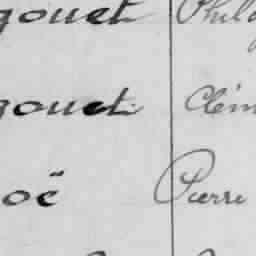 gouet Philo
gouet Clém
oë Pierre